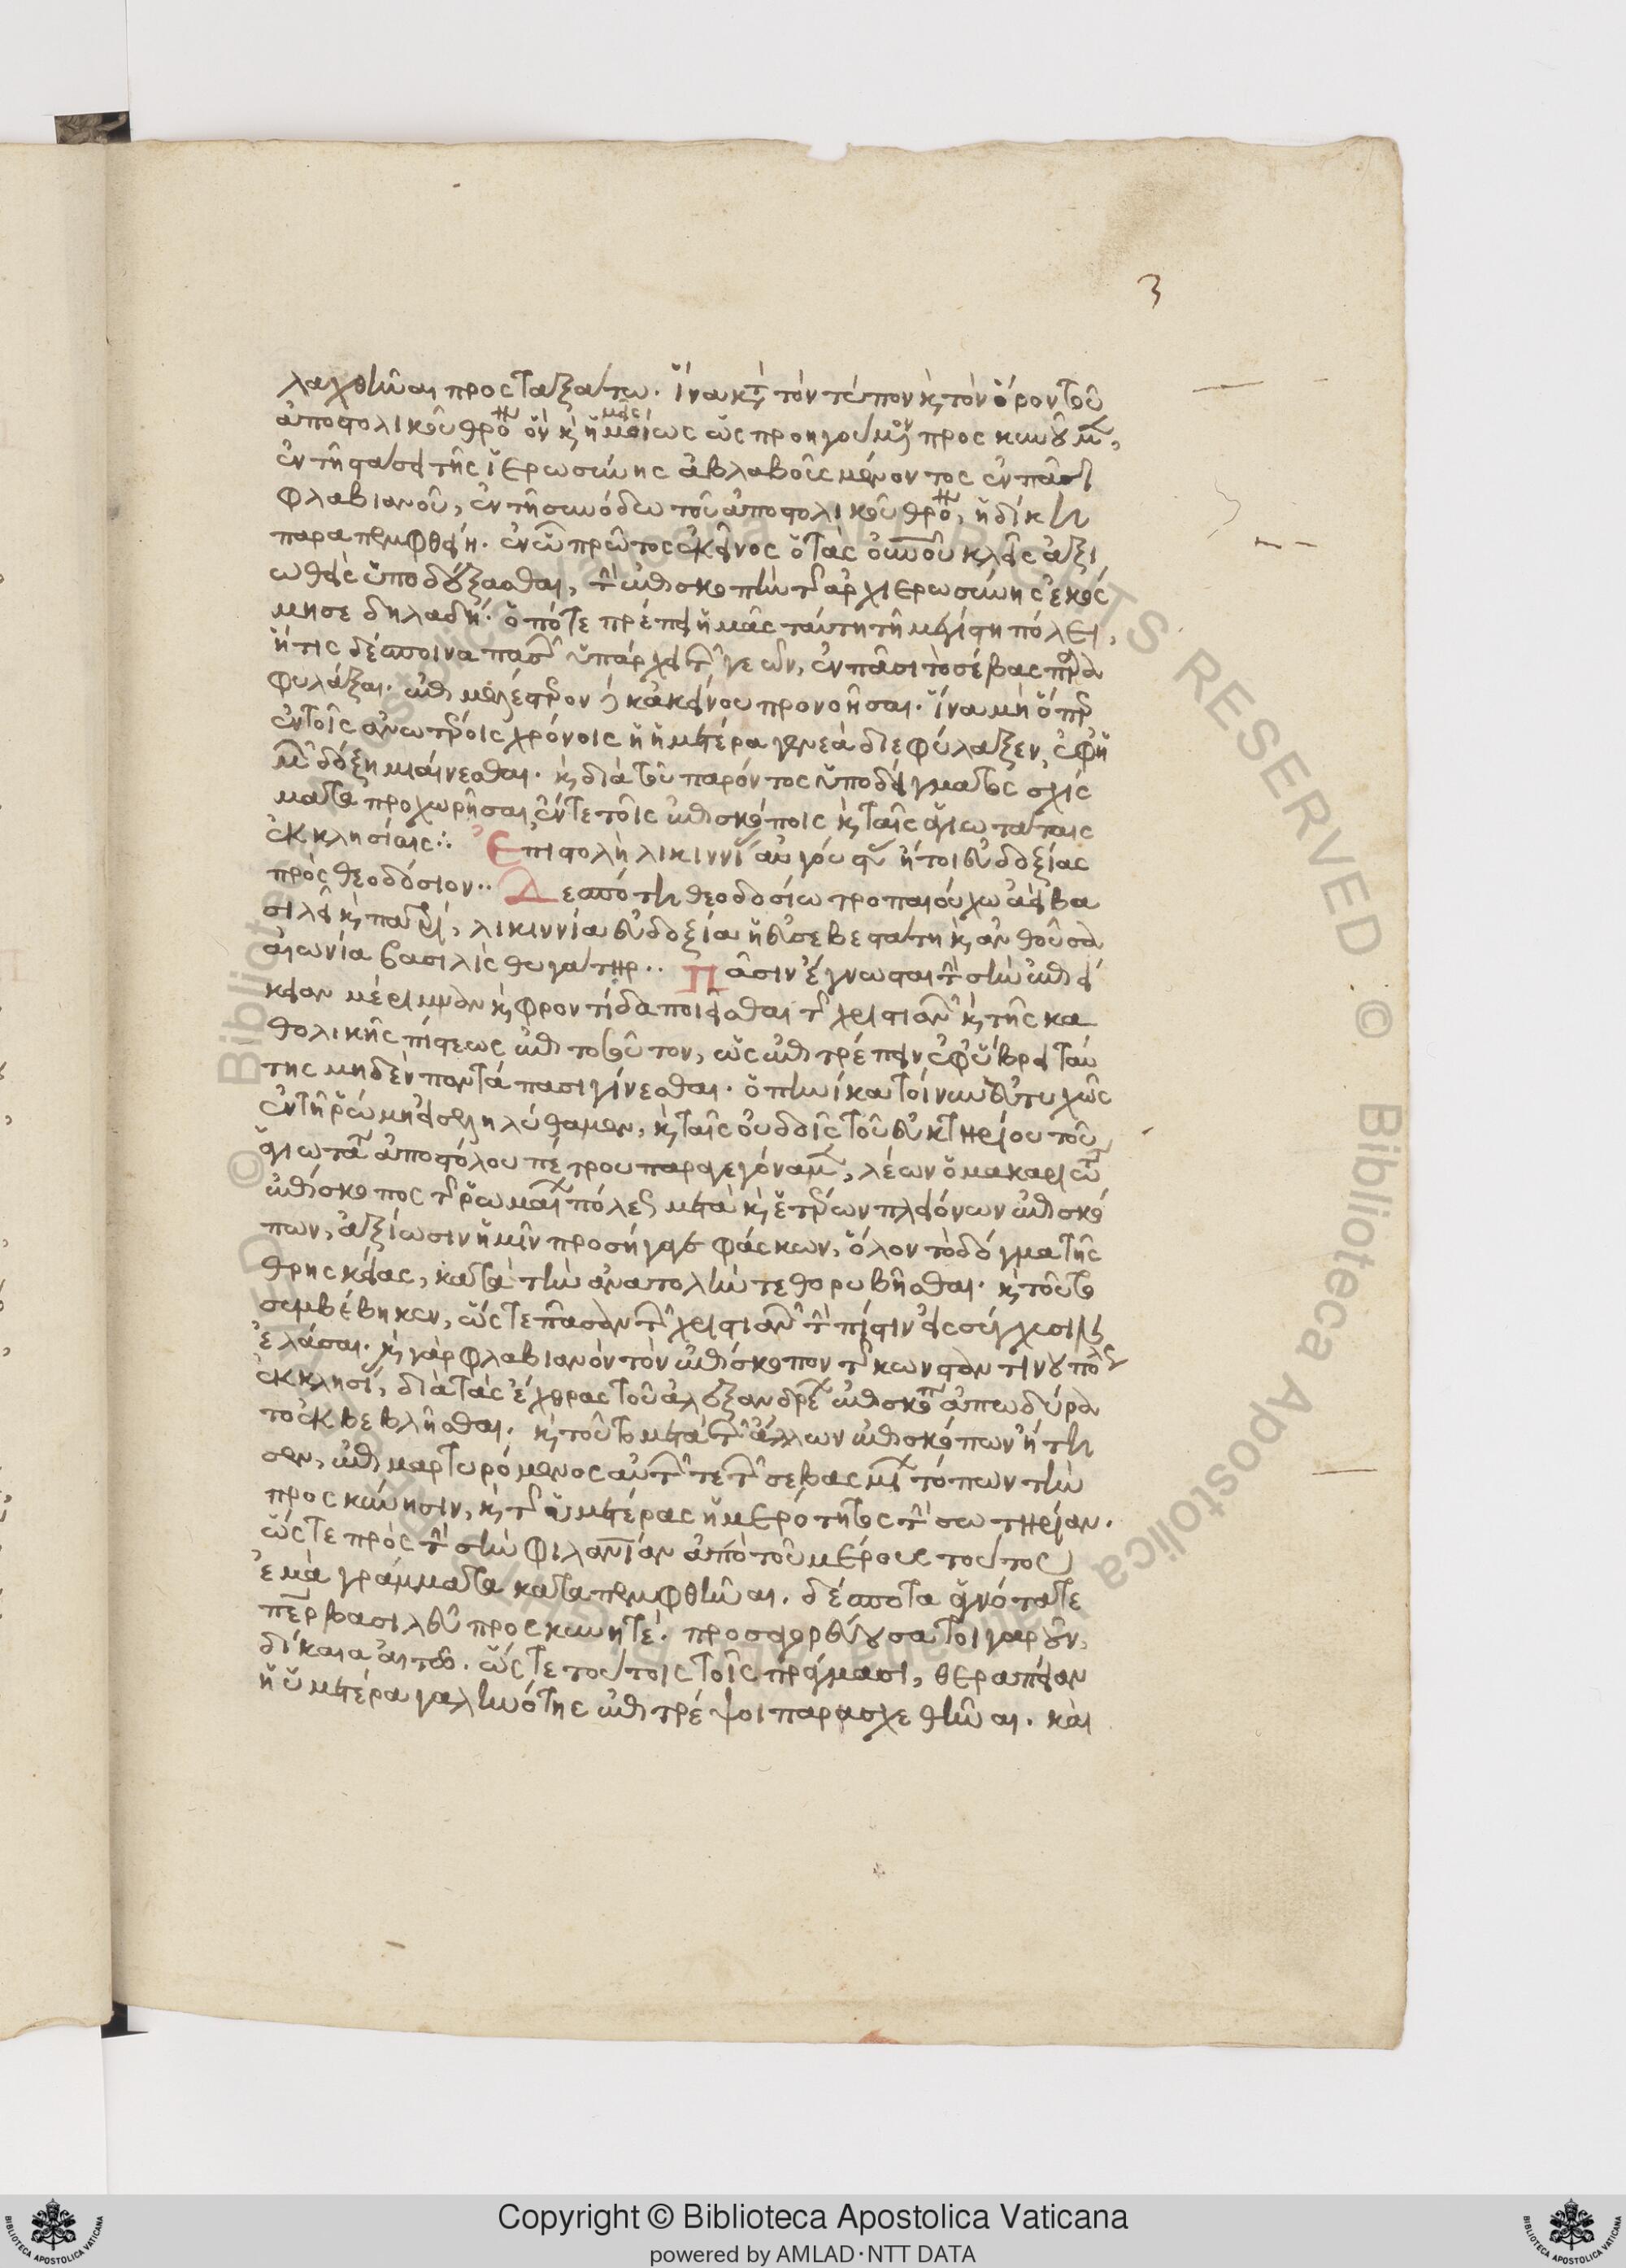 3
λαχθῆναι προσταξάτω. ἵνα κτ τὸν τύπον κ τὸν ὅρον τοῦ
ἀποστολικοῦ θρό ὃν κ ἡμεῖς ὁμοίως ὡς προηγούμ προσκυνοῦμ,
ἐν τῇ στάσει τῆς ἱερωσύνης ἀβλαβοῦς μένοντος ἐν πᾶσι
φλαβιανοῦ, ἐν τῇ συνόδω τοῦ ἀποστολικοῦ θρό, ἡ δίκη
παραπεμφθείη. ἐν ᾧ πρῶτος ἐκεῖνος ὁ τὰς οὐνοῦ κλεῖς ἀξι
ωθεὶς ὑποδέξασθαι, τ ἐπισκοπὴν τ ἀρχιερωσύνης ἐκόσ
μησε δηλαδή. ὁπότε πρέπει ἡμᾶς ταύτη τῆ μεγίστη πόλει,
ἥτις δέσποινα πασ ὑπάρχει τ γεῶν, ἐν πᾶσι τὸ σέβας
φυλάξαι. ἐπιμελέστρον κἀκείνου προνοῆσαι. ἵνα μὴ ὅπρ
ἐν τοῖς ἀνωτροις χρόνοις ἡ ἡμετέρα γενεὰ διεφύλαξεν, ἐφ ἡ
μ δόξη μιαίνεσθαι. κ διὰ τοῦ παρόντος ὑποδείγματος σχίσ
ματα προχωρῆσαι, ἔν τε τοῖς ἐπισκόποις κ ταῖς ἁγιωτάταις
ἐκκλησίαις:· Ἐπιστολὴ λικιννί αὐγούστ ἤτοι εὐδοξίας
πρὸς θεοδόσιον·· Δεσπότη θεοδοσίω τροπαιούχω ἀεὶ βα
σιλεῖ κ πατρί, λικιννία εὐδοξία ἡ εὐσεβεστάτη κ ἀνθοῦσα
αἰωνία βασιλὶς θυγάτηρ·· Πᾶσιν ἔγνωσται τ σὴν ἐπιεί
κειαν μέριμναν κ φροντίδα ποιεῖσθαι τ χριστιαν κ τῆς κα
θολικῆς πίστεως ἐπὶ τοσοῦτον, ὡς ἐπιτρέπειν ἐφ ὕβρει ταύ
της μηδὲν παντάπασι γίνεσθαι. ὁπηνίκα τοίνυν εὐτυχῶς
ἐν τῇ ῥώμη εἰσεληλύθαμεν, κ ταῖς οὐδοῖς τοῦ εὐκτηρίου τοῦ
ἁγιωτά ἀποστόλου πέτρου παραγεγόναμ, λέων ὁ μακαριώτ
ἐπίσκοπος τ ῥωμαί πόλες μετὰ κ ἑτρων πλειόνων ἐπισκό
πων, ἀξίωσιν ἡμῖν προσήγαγε φάσκων, ὅλον τὸ δόγμα τῆς
θρησκείας, κατὰ τὴν ἀνατολὴν τεθορυβῆσθαι. κ τοῦτο
συμβέβηκεν, ὥστε πᾶσαν τ χριστιαν τ πίστιν εἰς σύγχυσιν
ἐλάσαι. κ γὰρ φλαβιανὸν τὸν ἐπίσκοπον τ κωνσταντινουπόλ
ἐκκλησί, διὰ τὰς ἔχθρας τοῦ ἀλεξανδρε ἐπισκόπ ἀπωδύρα
το ἐκβεβλῆσθαι. κ τοῦτο μετὰ τ ἄλλων ἐπισκόπων ἤτη
σεν, ἐπιμαρτυρόμενος αὐτ τε τ σεβασμί τόπων τὴν
προσκύνησιν, κ τ ὑμετέρας ἡμερότητος τ σωτηρίαν.
ὥστε πρὸς τ σὴν φιλανίαν ἀπὸ τοῦ μέρους τούτου
ἐμὰ γράμματα καταπεμφθῆναι. δέσποτα ἁγιώτατε
περ βασιλεῦ προσκυνητέ. προσαγορεύουσα τοιγαροῦν,
δίκαια αἰτῶ. ὥστε τούτοις τοῖς πράγμασι, θεραπείαν
ἡ ὑμετέρα γαληνότης ἐπιτρέψοι παρασχεθῆναι. καὶ
Copyright © Biblioteca Apostolica Vaticana
powered by AMLAD·NTT DATA